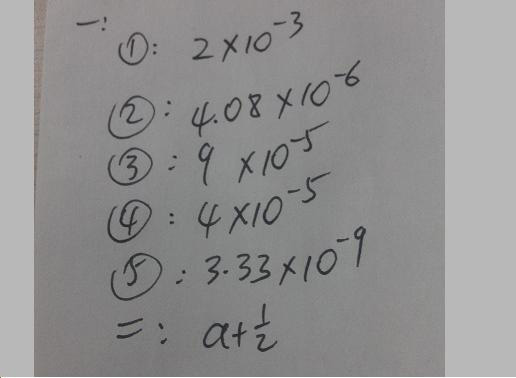 一:
①: 2×10⁻³
②: 4.08×10⁻⁶
③: 9×10⁻⁵
④: 4×10⁻⁵
⑤: 3.33×10⁻⁹
二: a+½